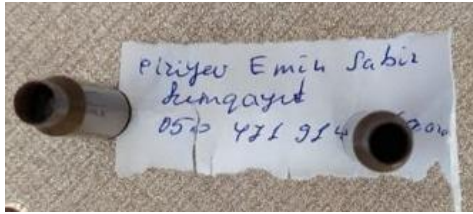 Piriyev Emin Sabir
Sumqayıt
050 471 914